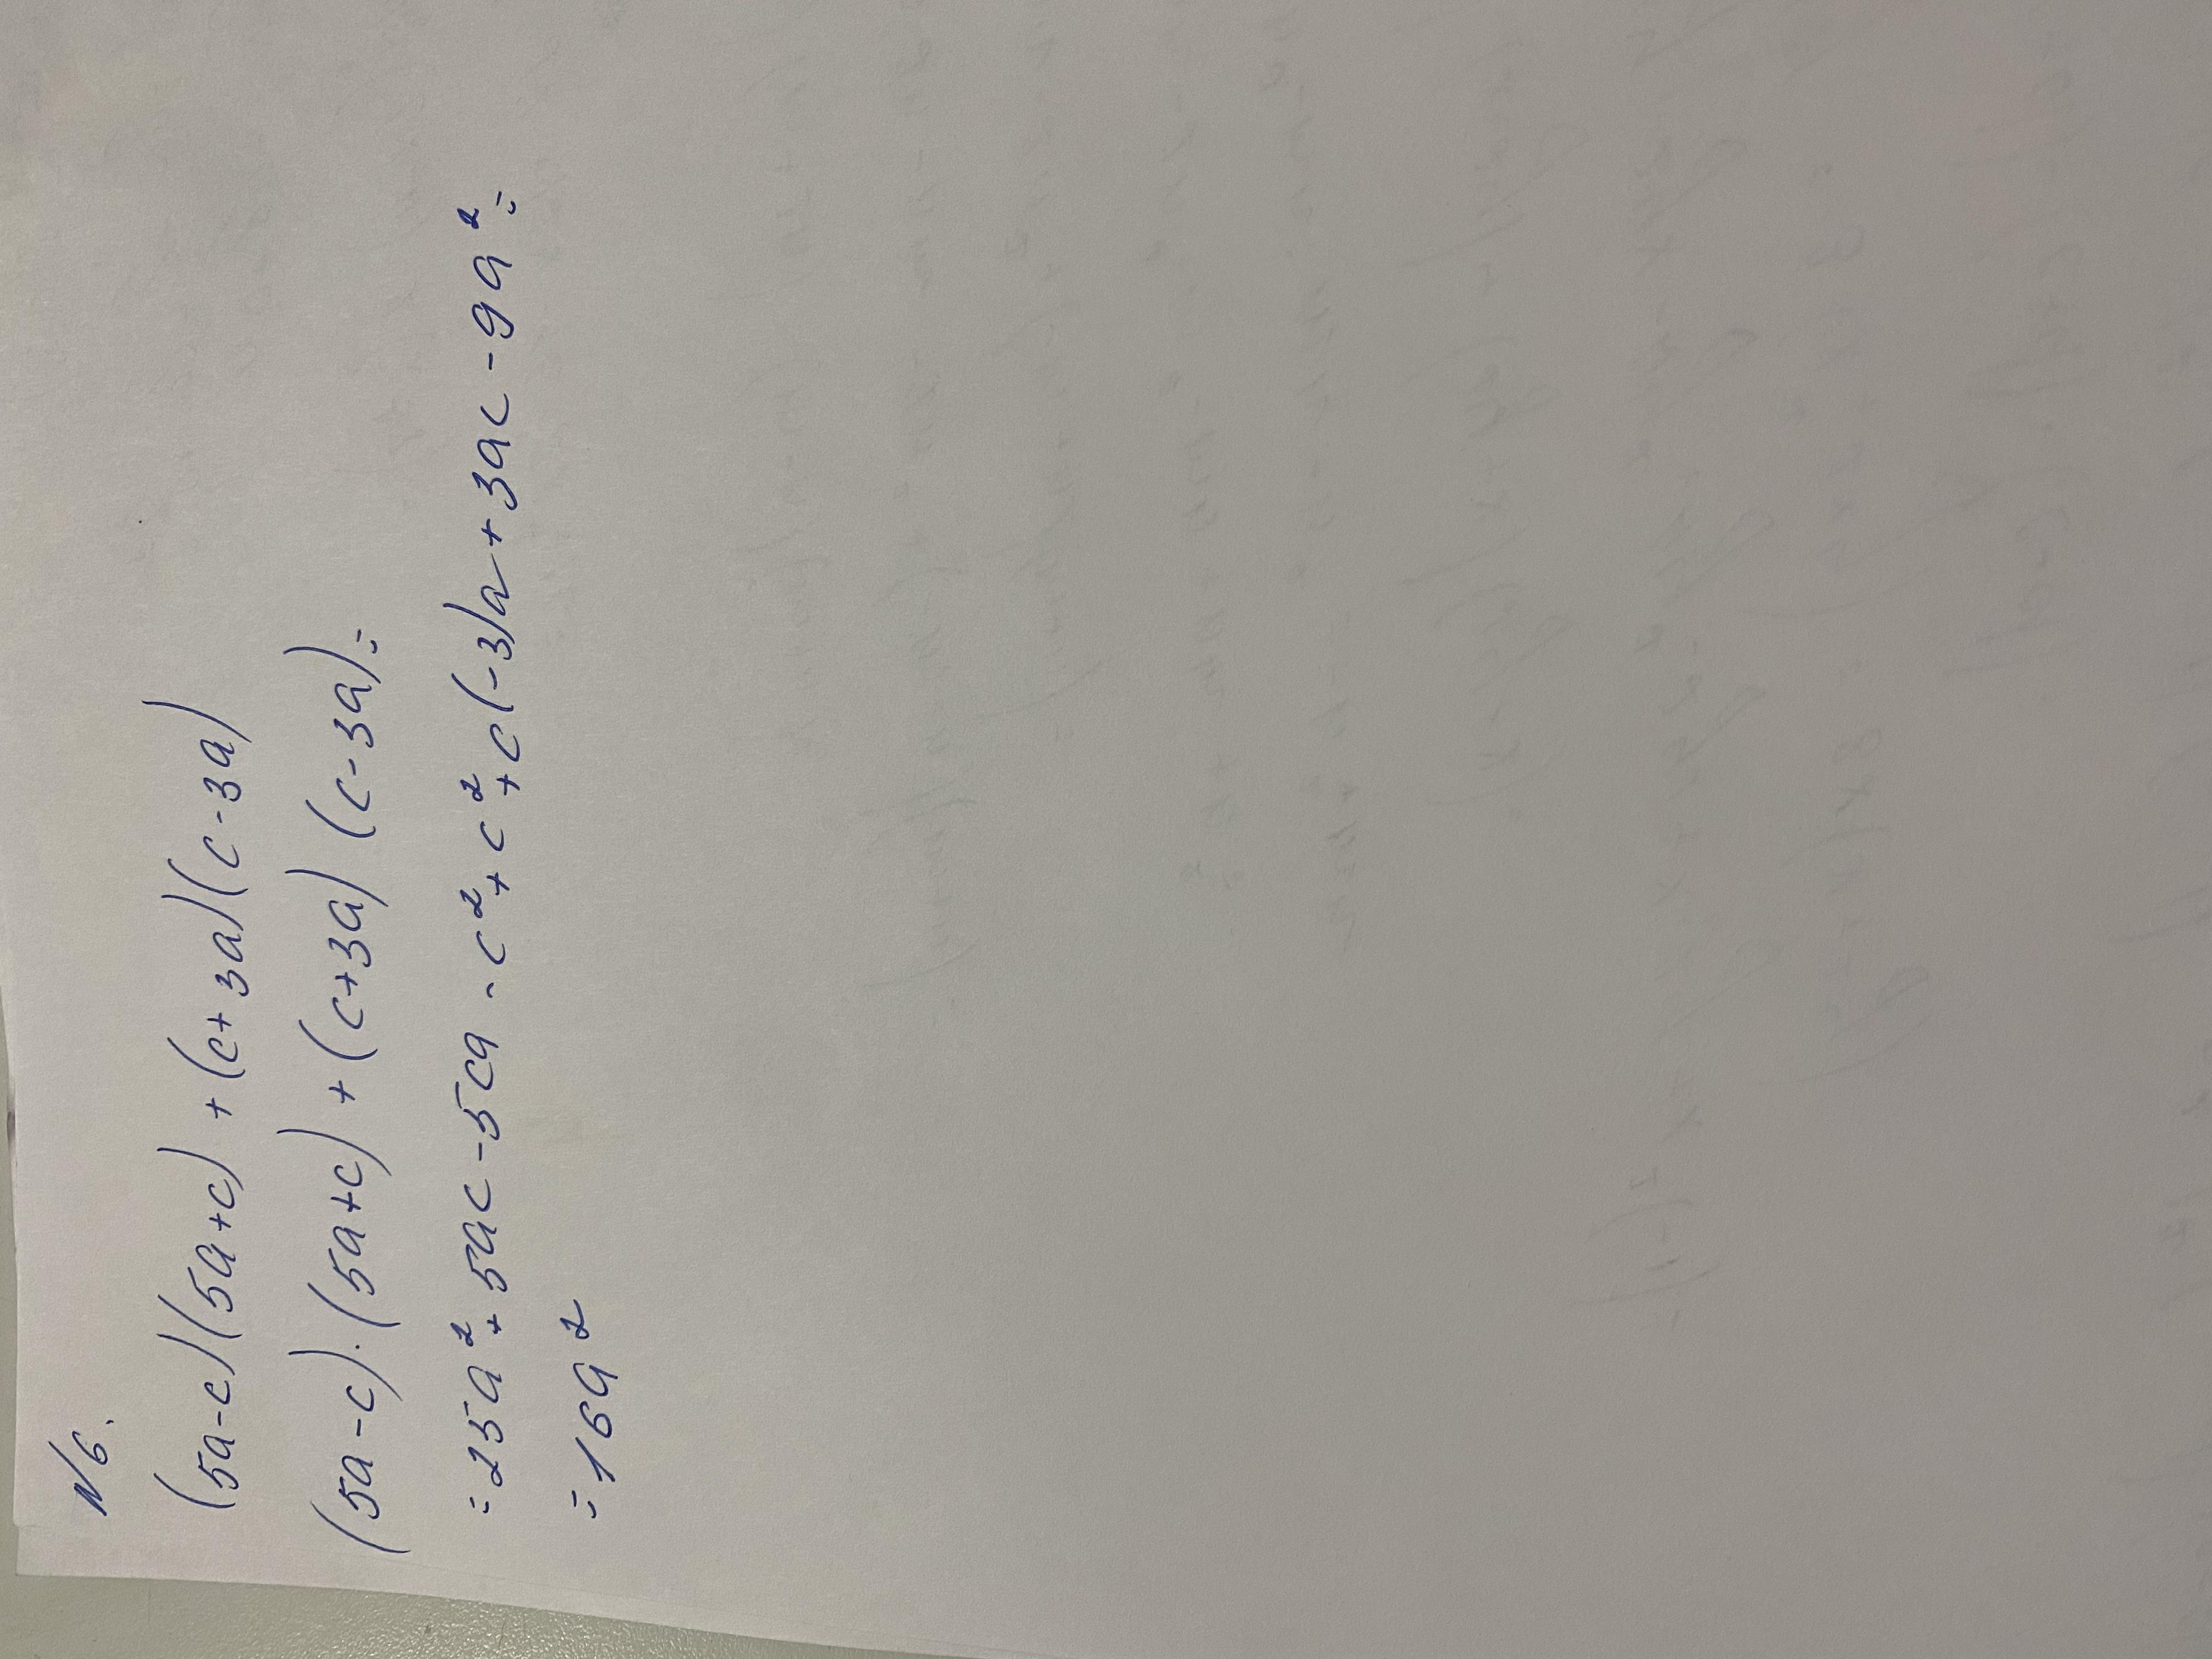 N6.
(5a-c)(5a+c) + (c+3a)(c-3a)
(5a-c)·(5a+c) + (c+3a) (c-3a)=
=25a²+5ac-5ca-c²+c²+c(-3)a+3ac-9a²=
=16a²